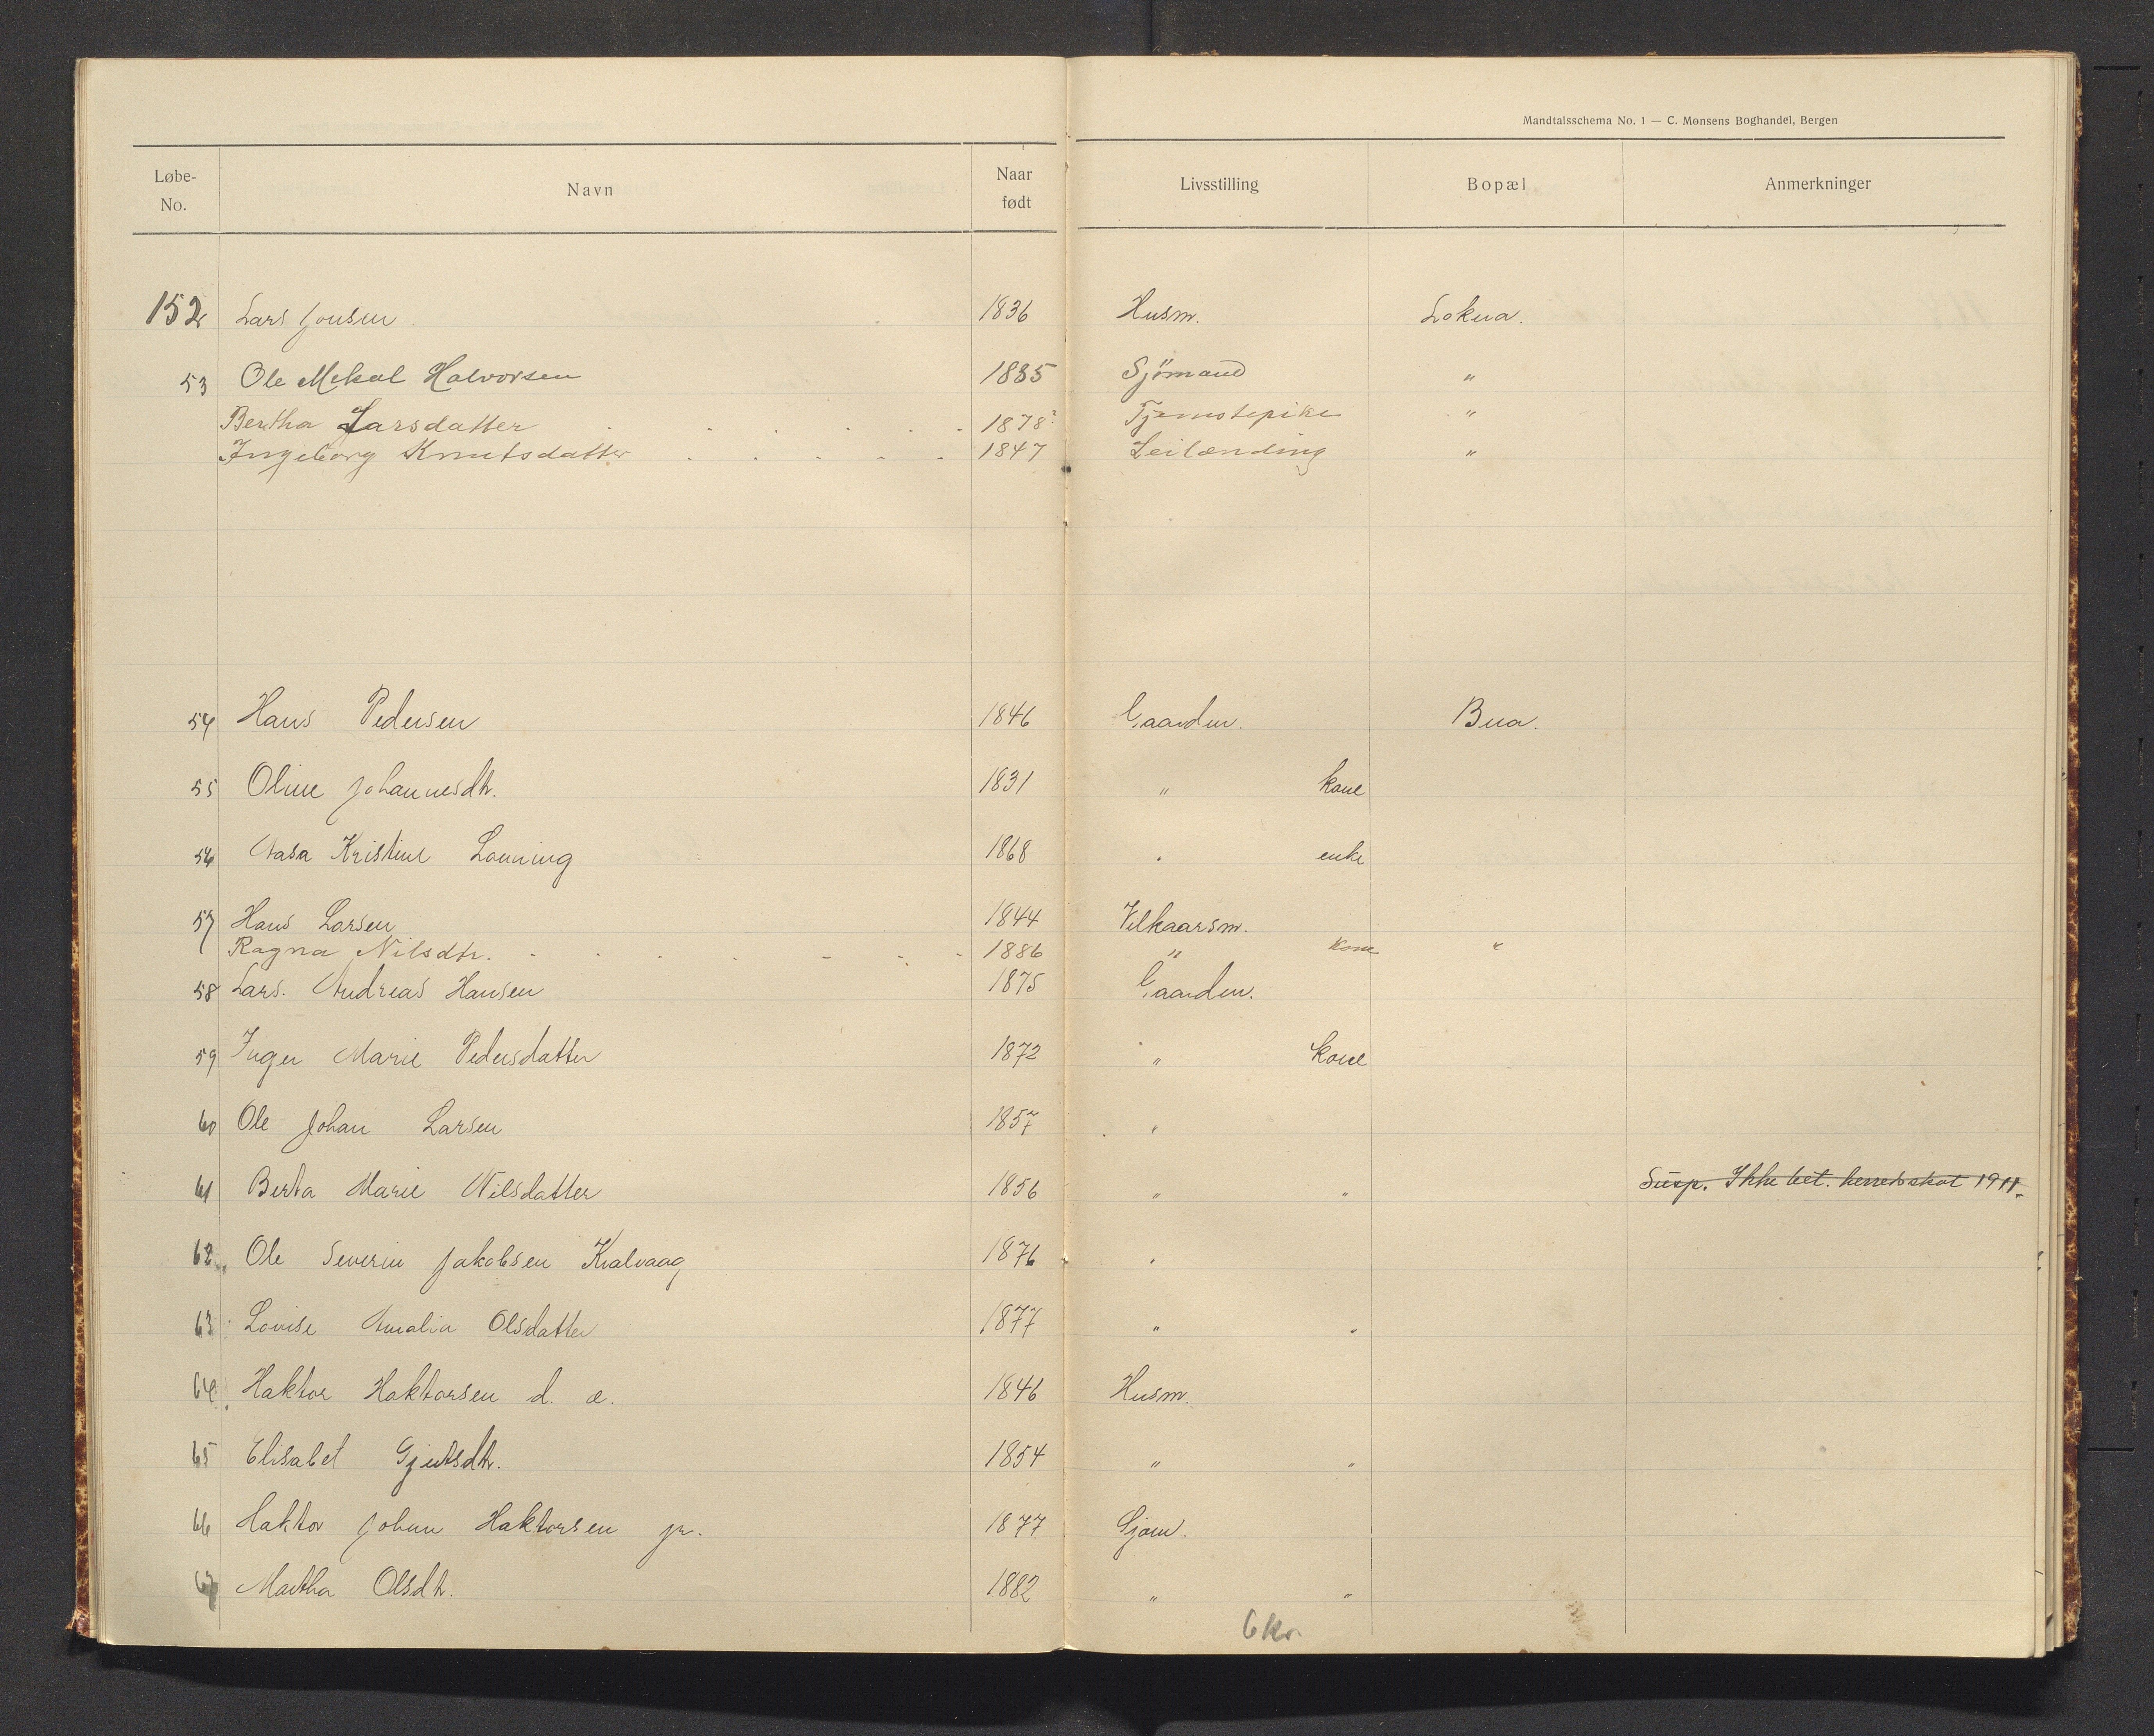 Mandtalsschema No. 1 — C. Monsens Boghandel, Bergen
Løbe-No. Navn Naar født Livsstilling Bopæl Anmerkninger
152 Lars Jonsen 1836 Husm. Lokna.
53 Ole Mekal Halvorsen 1885 Sjømand "
Bertha Larsdatter . . . . . . . 1878 Tjenstepike "
Ingeborg Knutsdatter . . . . . 1847 Leilænding "
54 Hans Pedersen 1846 Gaardm. Bua.
55 Oline Johannesdtr. 1831 " kone
56 Aasa Kristine Lønning 1868 " enke
57 Hans Larsen 1844 Vilkaarsm.
Ragna Nilsdtr. - . . . - . - 1886 " kone "
58 Lars. Andreas Hansen 1875 Gaardm.
59 Inger Marie Pedersdatter 1872 " kone
60 Ole Johan Larsen 1857 "
61 Berta Marie Nilsdatter 1856 " " Susp. Ikke bet. herredsskat 1911.
62 Ole Severin Jakobsen Kvalvaag 1876 "
63 Lovise Amalia Olsdatter 1877 " "
64 Haktor Haktorsen d. æ. 1846 Husm.
65 Elisabet Gjertsdtr. 1854 " "
66 Haktor Johan Haktorsen jr. 1877 Sjøm.
67 Martha Olsdtr. 1882 " "
6 kr.